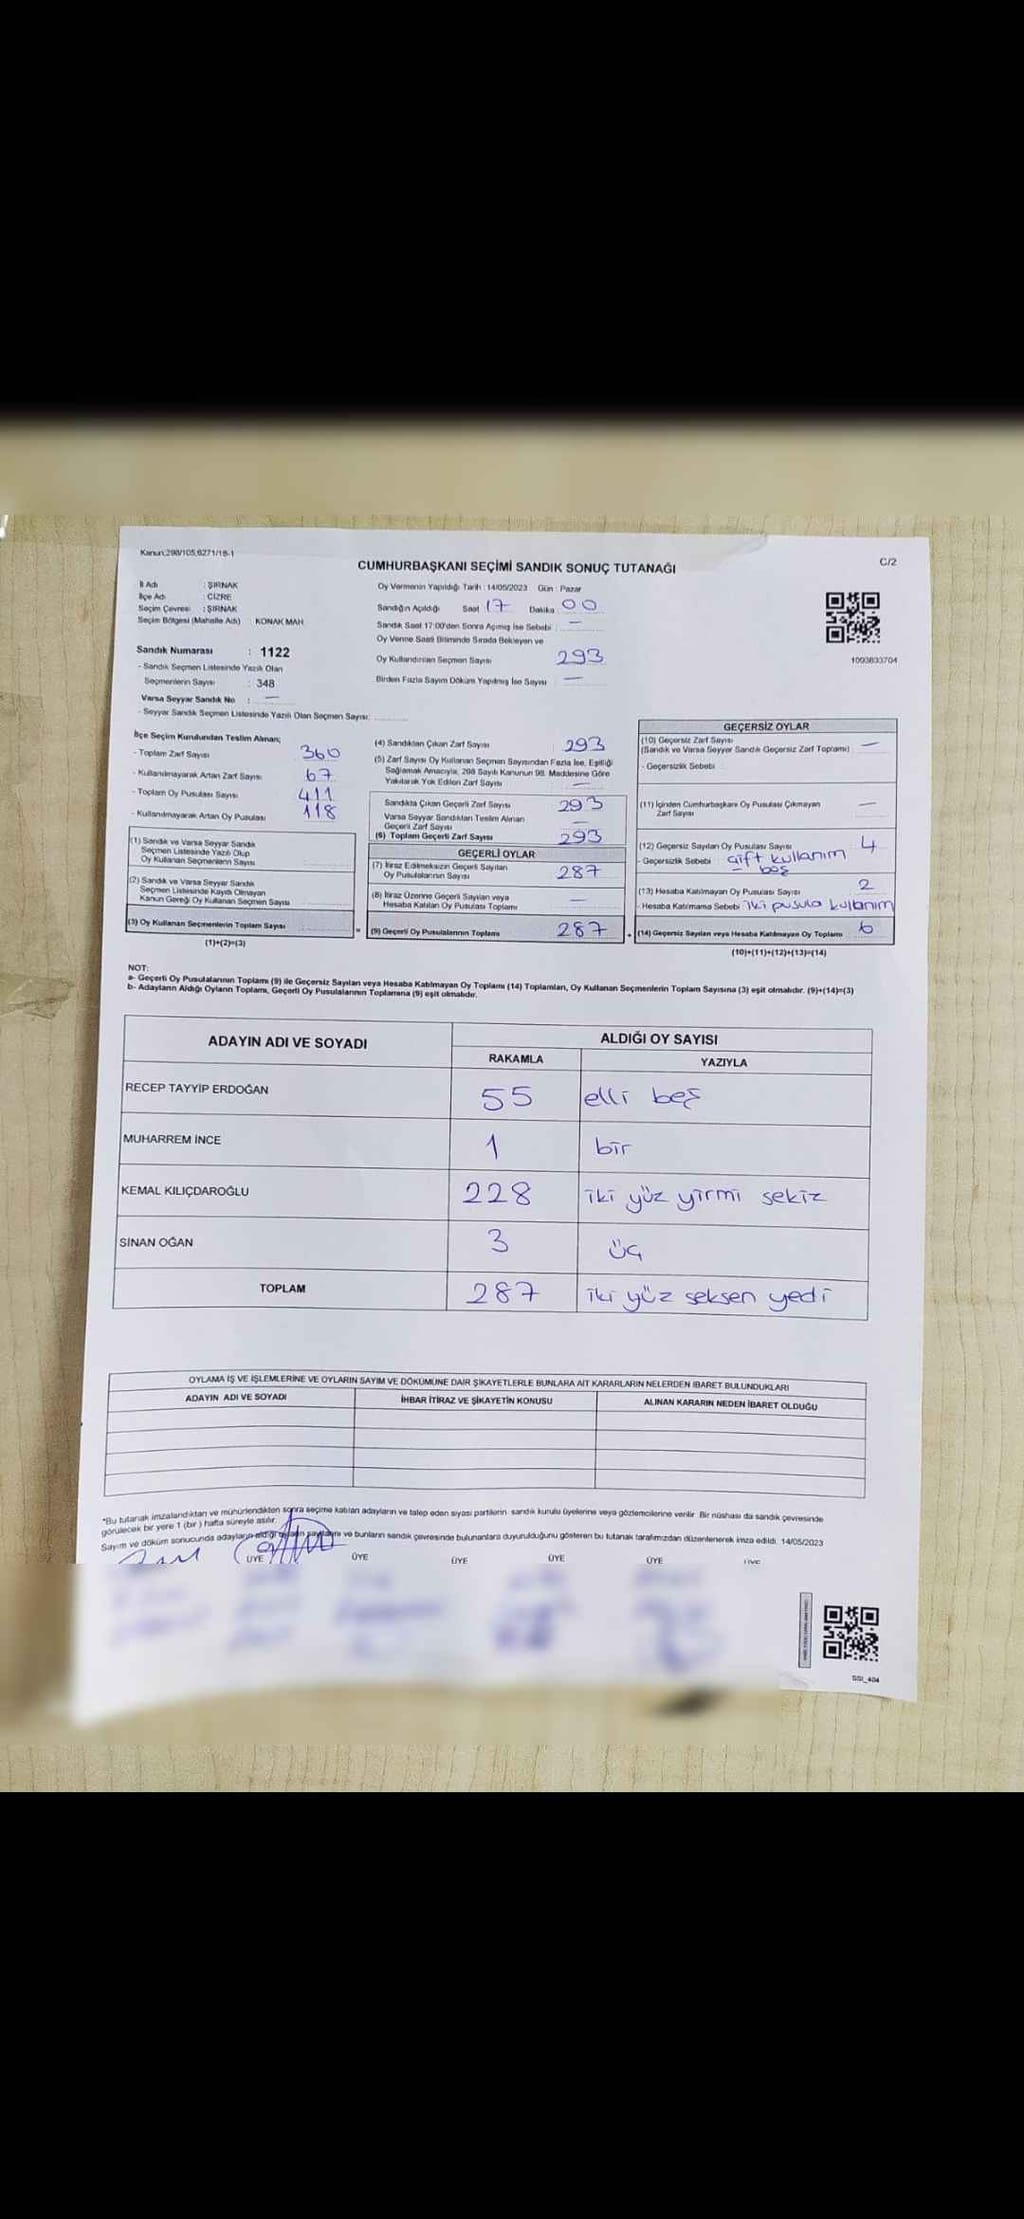 Kanun:298/105,6271/18-1
C/2
CUMHURBAŞKANI SEÇİMİ SANDIK SONUÇ TUTANAĞI
İl Adı : ŞIRNAK
İlçe Adı : CİZRE
Seçim Çevresi : ŞIRNAK
Seçim Bölgesi (Mahalle Adı) KONAK MAH
Sandık Numarası : 1122
- Sandık Seçmen Listesinde Yazılı Olan
Seçmenlerin Sayısı : 348
Varsa Seyyar Sandık No : —
- Seyyar Sandık Seçmen Listesinde Yazılı Olan Seçmen Sayısı:
Oy Vermenin Yapıldığı Tarih : 14/05/2023 Gün : Pazar
Sandığın Açıldığı Saat 17 Dakika 00
Sandık Saat 17:00'den Sonra Açılmış İse Sebebi : —
Oy Verme Saati Bitiminde Sırada Bekleyen ve
Oy Kullandırılan Seçmen Sayısı 293
Birden Fazla Sayım Döküm Yapılmış İse Sayısı —
1093833704
İlçe Seçim Kurulundan Teslim Alınan;
- Toplam Zarf Sayısı 360
- Kullanılmayarak Artan Zarf Sayısı 67
- Toplam Oy Pusulası Sayısı 411
- Kullanılmayarak Artan Oy Pusulası 118
(1) Sandık ve Varsa Seyyar Sandık
Seçmen Listesinde Yazılı Olup
Oy Kullanan Seçmenlerin Sayısı
(2) Sandık ve Varsa Seyyar Sandık
Seçmen Listesinde Kayıtlı Olmayan
Kanun Gereği Oy Kullanan Seçmen Sayısı
(3) Oy Kullanan Seçmenlerin Toplam Sayısı
(1)+(2)=(3)
=
(4) Sandıktan Çıkan Zarf Sayısı 293
(5) Zarf Sayısı Oy Kullanan Seçmen Sayısından Fazla İse, Eşitliği
Sağlamak Amacıyla, 298 Sayılı Kanunun 98. Maddesine Göre
Yakılarak Yok Edilen Zarf Sayısı —
Sandıkta Çıkan Geçerli Zarf Sayısı 293
Varsa Seyyar Sandıktan Teslim Alınan
Geçerli Zarf Sayısı —
(6) Toplam Geçerli Zarf Sayısı 293
GEÇERLİ OYLAR
(7) İtiraz Edilmeksizin Geçerli Sayılan
Oy Pusulalarının Sayısı 287
(8) İtiraz Üzerine Geçerli Sayılan veya
Hesaba Katılan Oy Pusulası Toplamı —
(9) Geçerli Oy Pusulalarının Toplamı 287
+
GEÇERSİZ OYLAR
(10) Geçersiz Zarf Sayısı
(Sandık ve Varsa Seyyar Sandık Geçersiz Zarf Toplamı) —
- Geçersizlik Sebebi
(11) İçinden Cumhurbaşkanı Oy Pusulası Çıkmayan
Zarf Sayısı —
(12) Geçersiz Sayılan Oy Pusulası Sayısı 4
- Geçersizlik Sebebi çift kullanım
boş
(13) Hesaba Katılmayan Oy Pusulası Sayısı 2
- Hesaba Katılmama Sebebi iki pusula kullanım
(14) Geçersiz Sayılan veya Hesaba Katılmayan Oy Toplamı 6
(10)+(11)+(12)+(13)=(14)
NOT:
a- Geçerli Oy Pusulalarının Toplamı (9) ile Geçersiz Sayılan veya Hesaba Katılmayan Oy Toplamı (14) Toplamları, Oy Kullanan Seçmenlerin Toplam Sayısına (3) eşit olmalıdır. (9)+(14)=(3)
b- Adayların Aldığı Oyların Toplamı, Geçerli Oy Pusulalarının Toplamına (9) eşit olmalıdır.
ADAYIN ADI VE SOYADI
ALDIĞI OY SAYISI
RAKAMLA YAZIYLA
RECEP TAYYİP ERDOĞAN 55 elli beş
MUHARREM İNCE 1 bir
KEMAL KILIÇDAROĞLU 228 iki yüz yirmi sekiz
SİNAN OĞAN 3 üç
TOPLAM 287 iki yüz seksen yedi
OYLAMA İŞ VE İŞLEMLERİNE VE OYLARIN SAYIM VE DÖKÜMÜNE DAİR ŞİKAYETLERLE BUNLARA AİT KARARLARIN NELERDEN İBARET BULUNDUKLARI
ADAYIN ADI VE SOYADI İHBAR İTİRAZ VE ŞİKAYETİN KONUSU ALINAN KARARIN NEDEN İBARET OLDUĞU
*Bu tutanak imzalandıktan ve mühürlendikten sonra seçime katılan adayların ve talep eden siyasi partilerin sandık kurulu üyelerine veya gözlemcilerine verilir. Bir nüshası da sandık çevresinde
görülecek bir yere 1 (bir ) hafta süreyle asılır.
Sayım ve döküm sonucunda adayların aldığı oyların sayılarını ve bunların sandık çevresinde bulunanlara duyurulduğunu gösteren bu tutanak tarafımızdan düzenlenerek imza edildi. 14/05/2023
ÜYE ÜYE ÜYE ÜYE ÜYE ÜYE
SSI_404